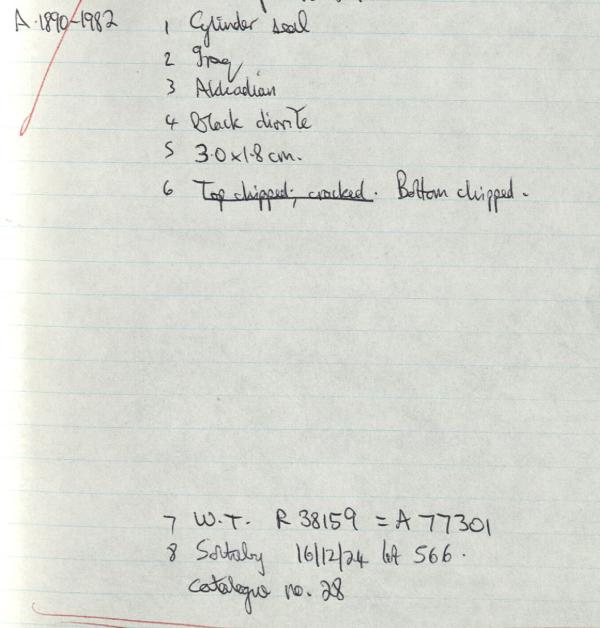 A.1890-1982 1 Cylinder seal
2 Iraq
3 Akkadian
4 Black diorite
5 3.0 x 1.8 cm.
6 Top chipped; cracked. Bottom chipped.
7 W.T. R 38159 = A 77301
8 Sotheby 16/12/24 lot 566.
catalogue no. 28